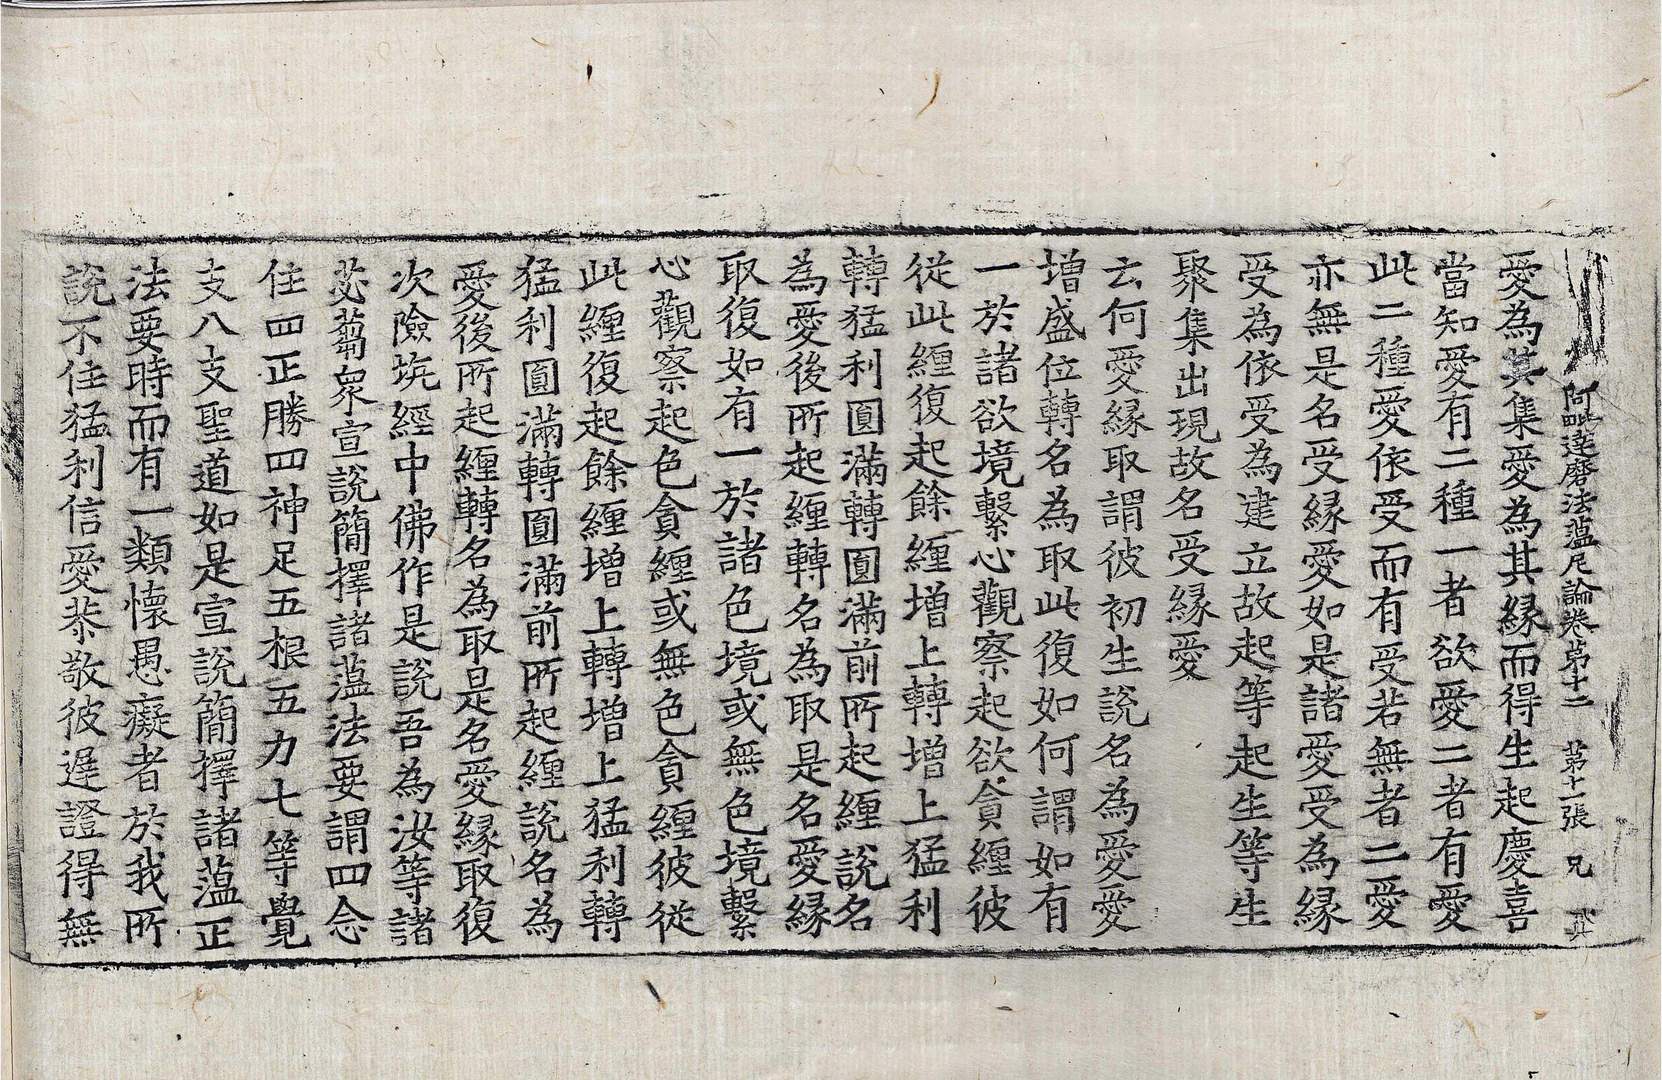 阿毗達磨法蕰足論卷第十二　第十一張　兄
愛為其集愛為其緣而得生起慶喜
當知愛有二種一者欲愛二者有愛
此二種愛依受而有受若無者二愛
亦無是名受緣愛如是諸愛受為緣
受為依受為建立故起等起生等生
聚集出現故名受緣愛
云何愛緣取謂彼初生說名為愛愛
增盛位轉名為取此復如何謂如有
一於諸欲境繫心觀察起欲貪纏彼
從此纏復起餘纏增上轉增上猛利
轉猛利圓滿轉圓滿前所起纏說名
為愛後所起纏轉名為取是名愛緣
取復如有一於諸色境或無色境繫
心觀察起色貪纏或無色貪纏彼從
此纏復起餘纏增上轉增上猛利轉
猛利圓滿轉圓滿前所起纏說名為
愛後所起纏轉名為取是名愛緣取復
次險坑經中佛作是說吾為汝等諸
苾蒭衆宣說簡擇諸蕰法要謂四念
住四正勝四神足五根五力七等覺
支八支聖道如是宣說簡擇諸蕰正
法要時而有一類懷愚癡者於我所
說不住猛利信愛恭敬彼遲證得無